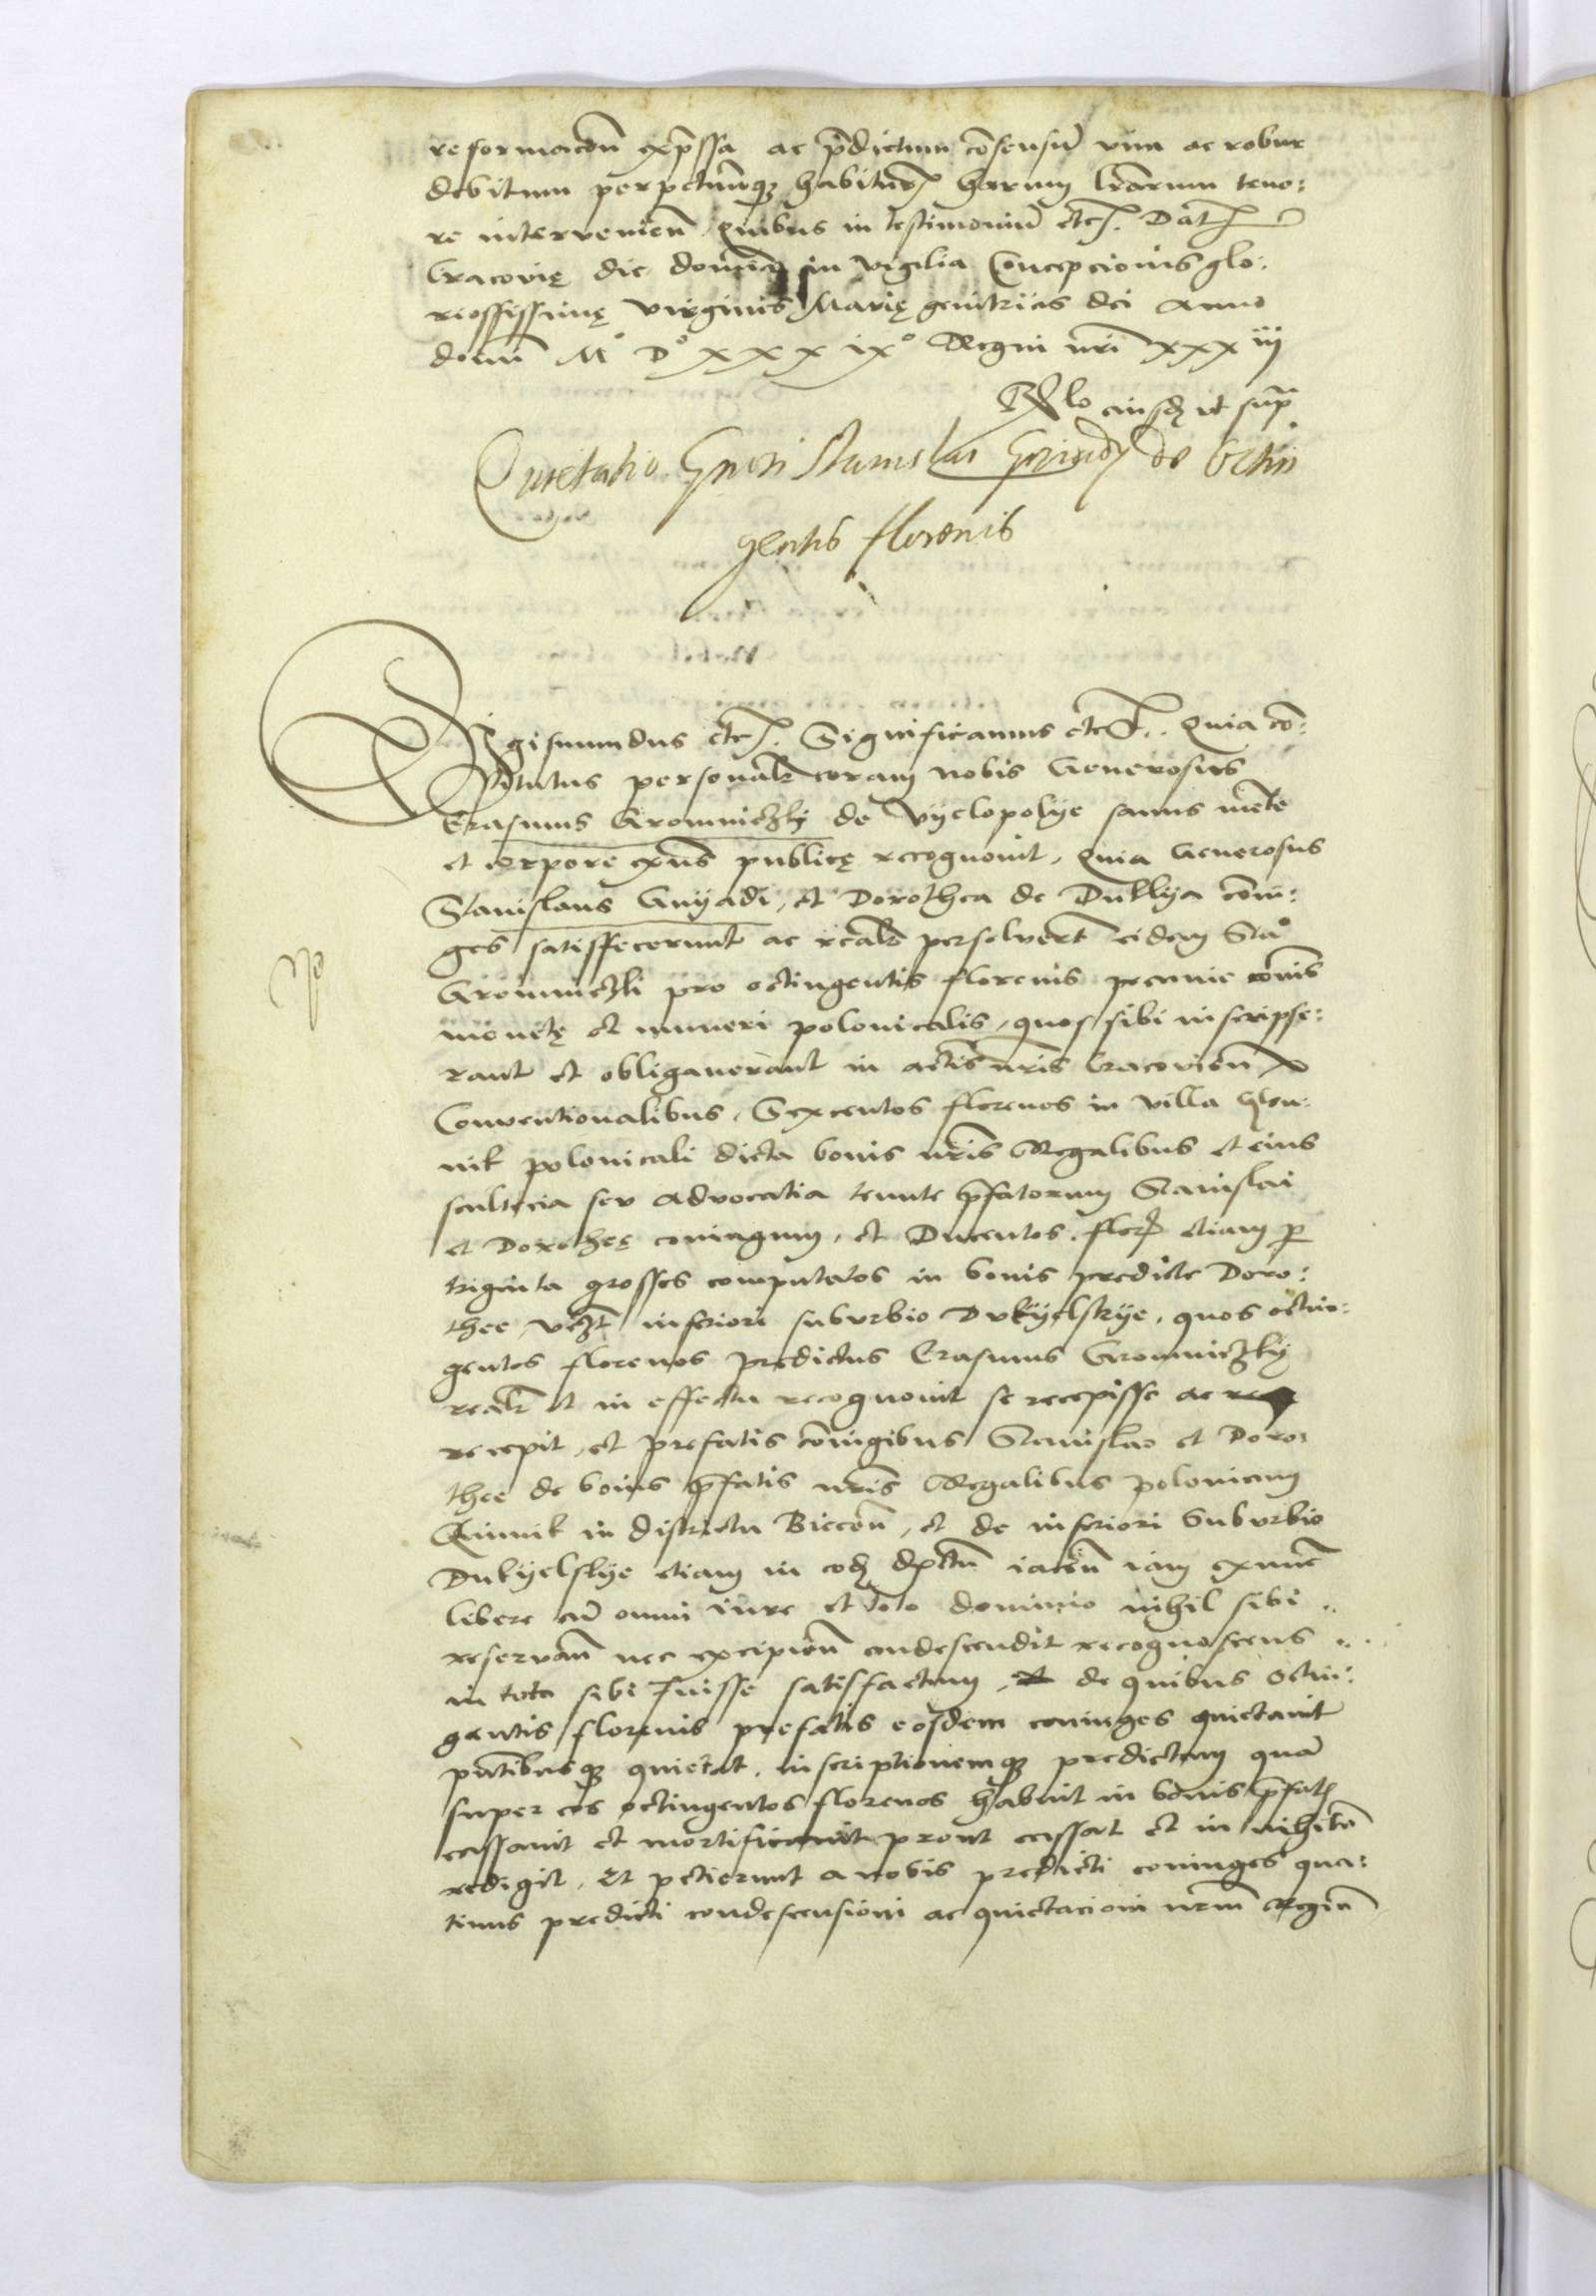 reformacoñ exp̃ssa ac p̃dictum cõsensũ vim ac robur
debitum perpetuũq; habitur harum l̃rarum teno:
re intervenieñ. Quibus in testimoniũ etc. Dat
Cracovię die dominica in vigilia Concepcionis glo:
riossissimę virginis Marię genitricis dei Anno
domini M° D° xxx ix° Regni nr̃i xxx iij
R̃lo eiusd; ut supr̃
Quietatio Gnosi Stanislai de Octin
gentis florenis
Sigismundus etc. Significamus etc. Quia cõ:
stitutus personalr̃ coram nobis Generosus
Erasmus Gromniczky de Vyelopolye sanus mẽte
et corpore exñs publicę recognovit, Quia Generosus
Stanislaus Gnyadi, et Dorothea de Duklya cõiu:
ges satisffecerunt ac realr̃ persolvert̃ eidem
Gromniczki pro octingentis florenis pecunie cõis
monetę et numeri polonicalis, quos sibi inscripse:
rant et obligaverant in actis nr̃is Cracovieñ
Conventionalibus, Sexcentos florenos in villa Glou
nik polonicali dicta bonis nr̃is Regalibus et eius
scultecia seu advocatia tenute p̃fatorum Stanislai
et Dorotheę coniugum, et Ducentos flor etiam p
triginta grossos computatos in bonis predicte Doro:
thee vczt inferiori suburbio Dukyelskye, quos octin:
gentos florenos predictus Erasmus Gromniczky
realr̃ et in effectu recognovit se recepisse ac
recepit, et prefatis cõiugibus Stanislao et Doro:
thee de bonis p̃fatis nr̃is Regalibus polonicum
in districtu Bieceñ, et de inferiori Suburbio
Dukyelskye etiam in eod; iaceñ iam exnunc
libere cũ omni iure et toto dominio nihil sibi
reservañ nec excipieñ condescendit recognoscens
in toto sibi fuisse satisfactum, et de quibus octin:
gentis florenis prefatis eosdem coniuges quietavit
pñtibusq; quietat, inscriptionemq; predictam quã
super eos octingentos florenos habuit in bonis p̃fat
cassavit et mortificavit prout cassat et in nihilũ
redigit, Et petierunt a nobis predicti coniuges qua:
tinus predicti condescensioni ac quietacioni nr̃m Regiũ